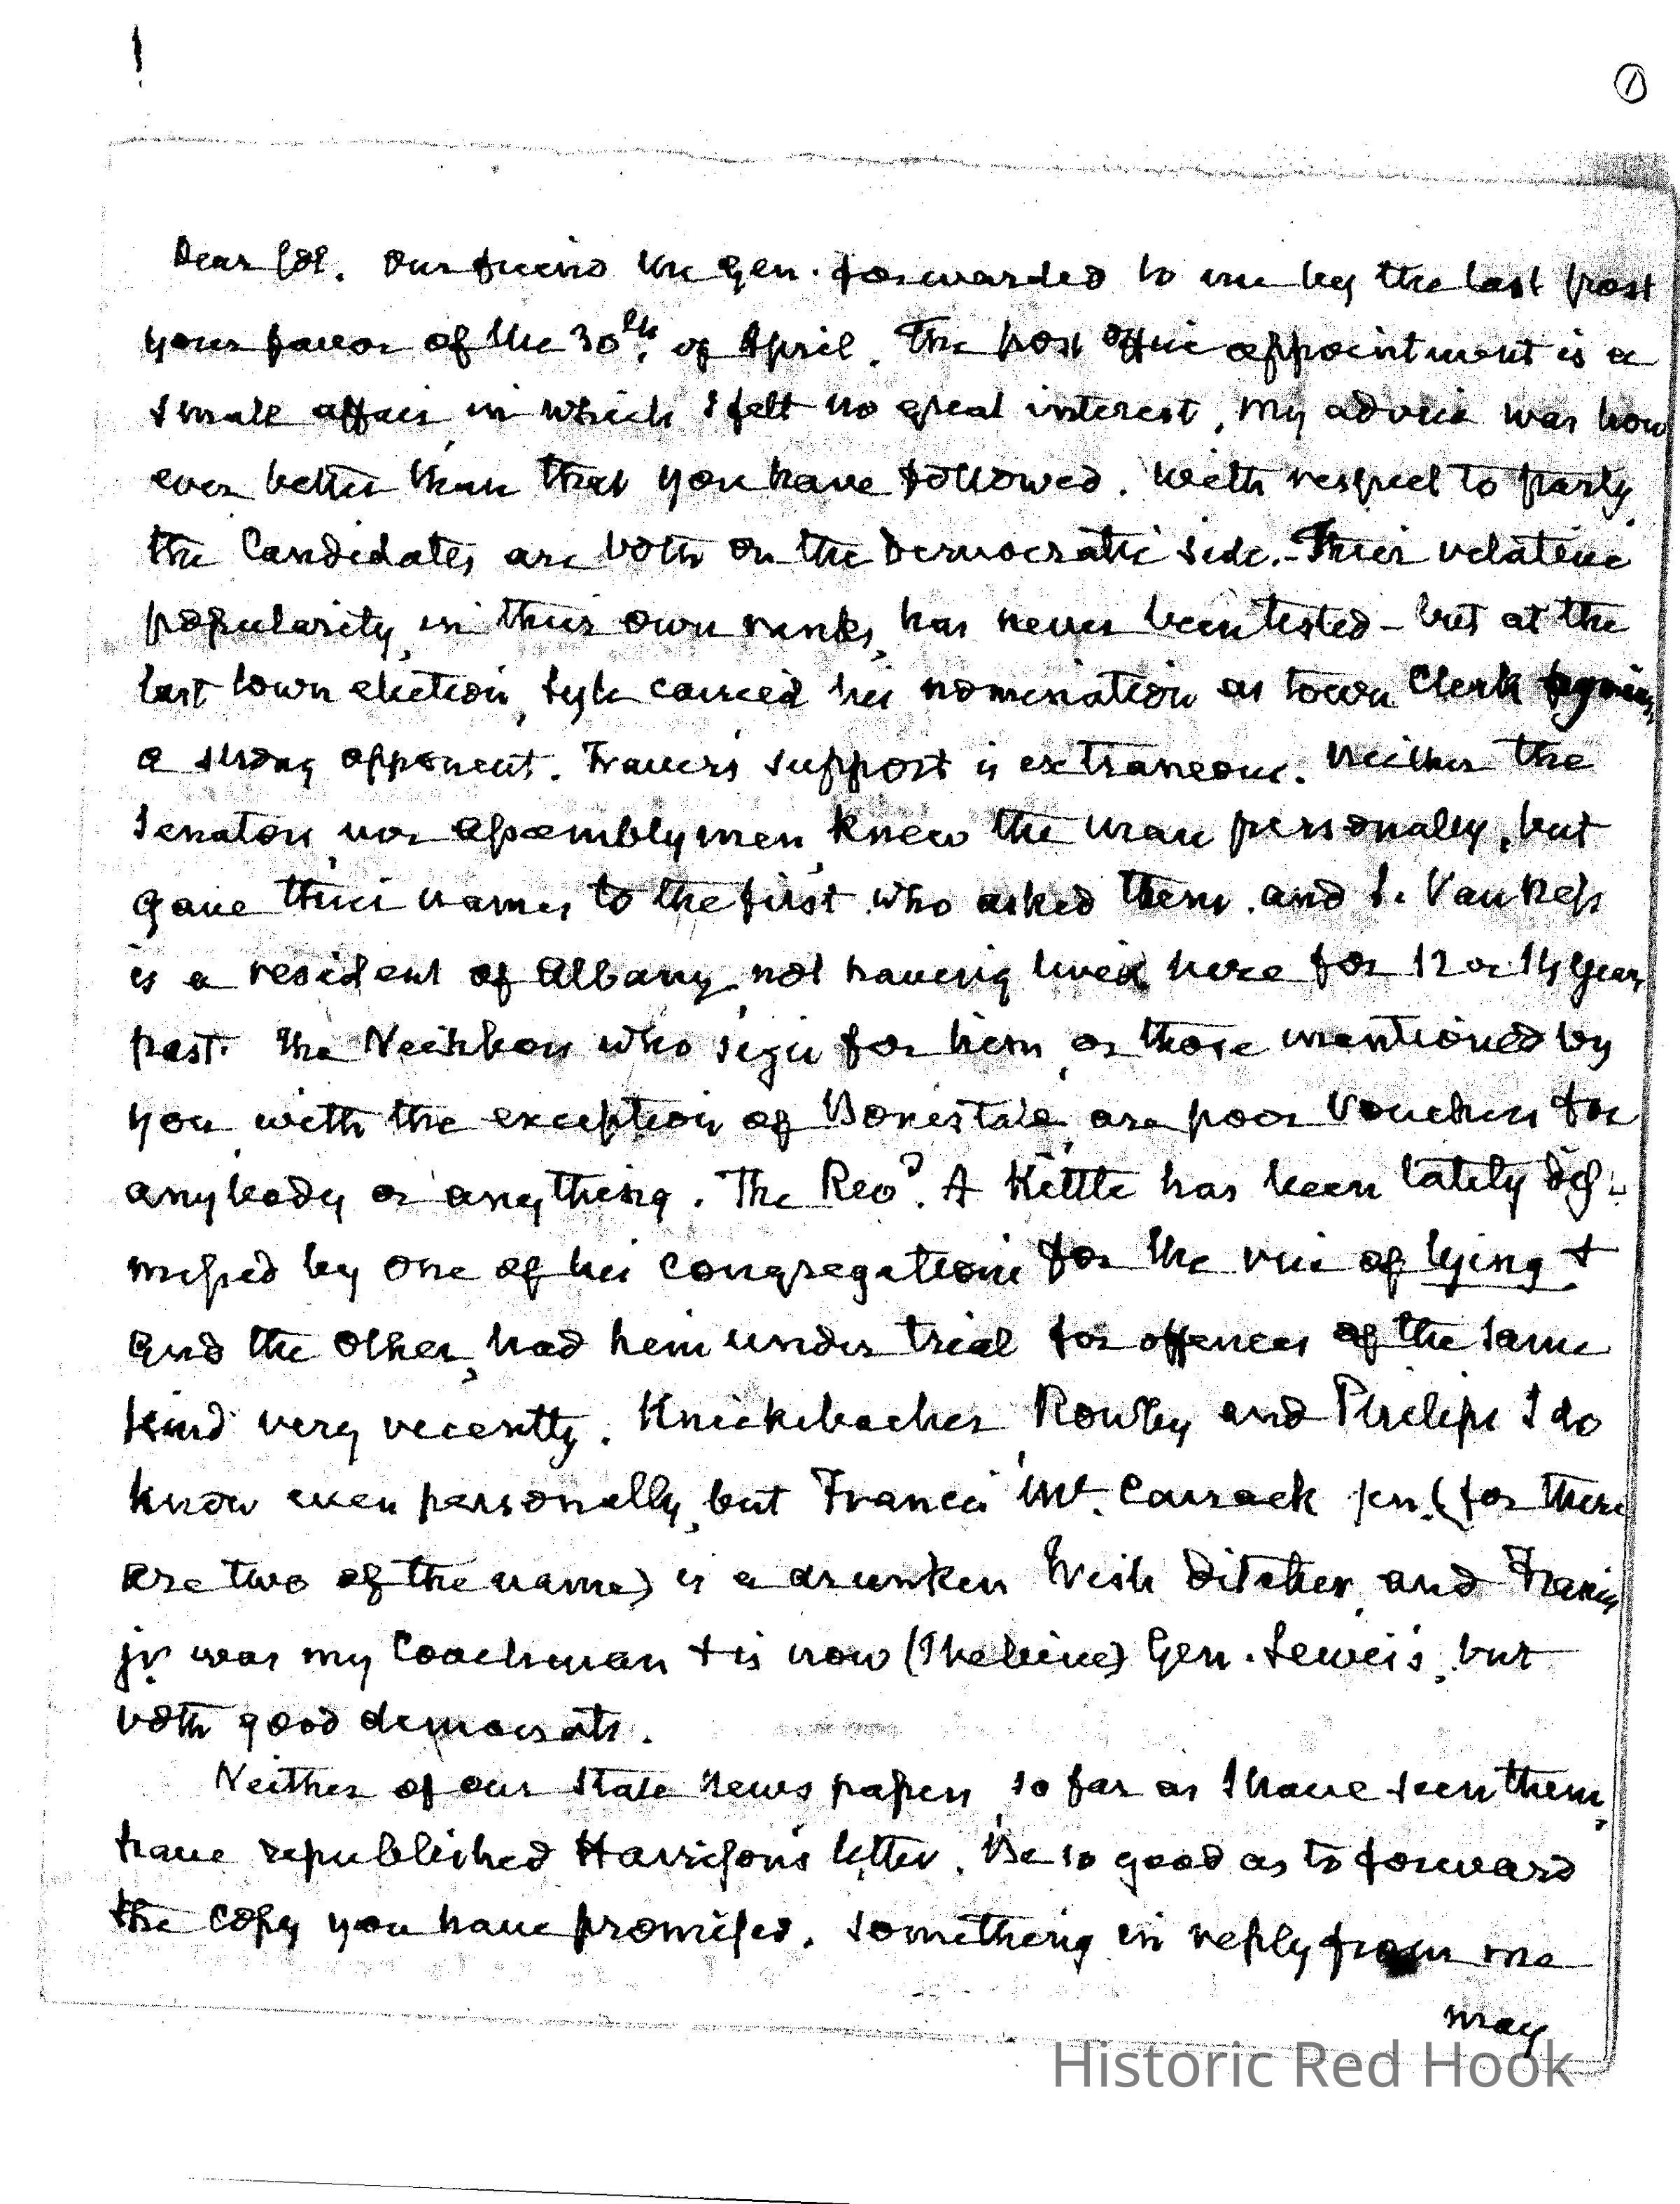 ①
Dear Col. Our friend the Gen. forwarded to me by the last post
your favor of the 30th. of April. The post Office appointment is a
small affair, in which I felt no great interest, my advice was how
ever better than that you have followed. With respect to party,
the Candidates are both on the Democratic side. - Their relative
popularity, in their own ranks, has never been tested - but at the
last town election, Lyle carried his nomination as town Clerk against
a strong opponent. Traver's support is extraneous. Neither the
Senators, nor assemblymen, knew the man personally, but
gave their names to the first who asked them. and S. Van Ness
is a resident of Albany, not having lived here for 12 or 14 years
past. The Neighbors who sign for him, or those mentioned by
you, with the exception of Bonestale, are poor Vouchers for
anybody or anything. The Revd. A Kittle has been lately dis-
missed by one of his congregations for the vice of lying &
and the other, had him under trial for offences of the same
kind very recently. Knickebacker, Rowley and Philips I do
know even personally, but Francis Mc. Carrack sen. (for there
are two of the name) is a drunken Irish Ditcher, and Francis
jr. was my Coachman & is now (I believe) Gen. Lewis's, but
both good democrats.
Neither of our State news papers, so far as I have seen them,
have republished Harrison's letter. Be so good as to forward
the copy you have promised. Something in reply from me
may
Historic Red Hook